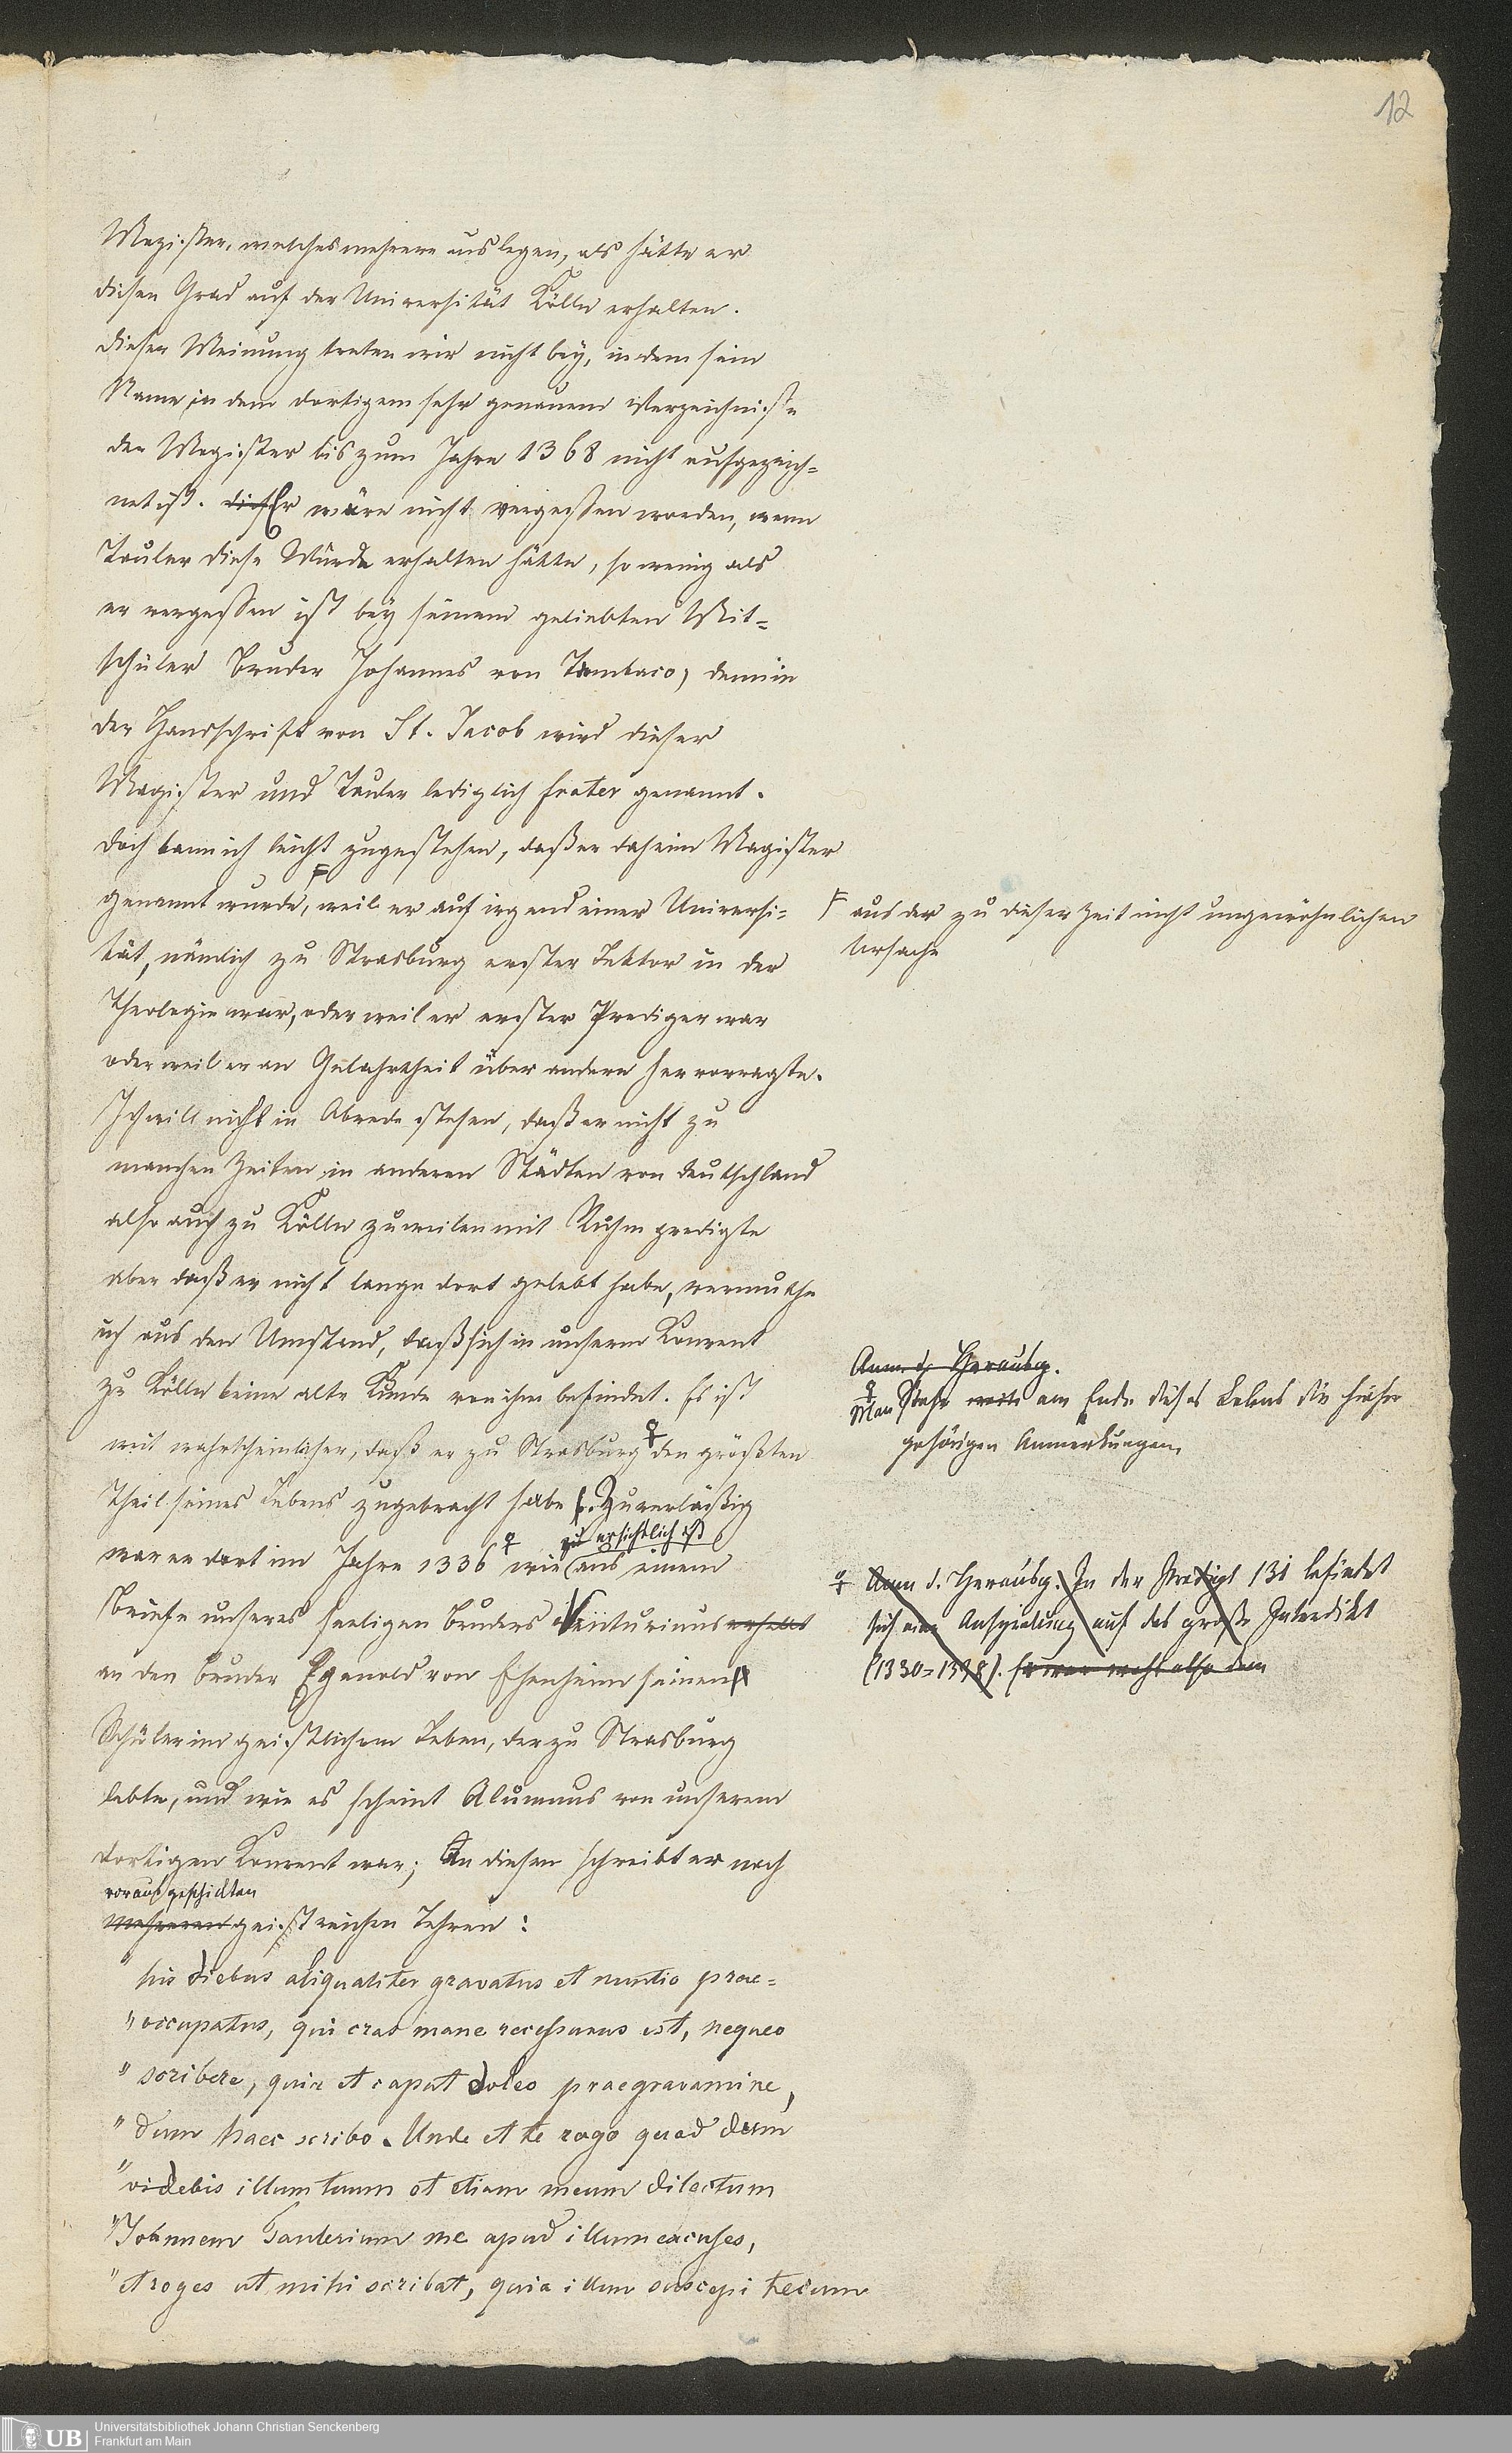 12
Magister, welches mehrere auslegen, als hätte er
diesen Grad auf der Universität Kölln erhalten.
Dieser Meinung treten wir nicht bey, indem sein
Name in dem dortigem sehr genauem Verzeichnisse
der Magister bis zum Jahre 1368 nicht aufgezeich=
net ist. Er wäre nicht vergessen worden, wenn
Tauler diese Würde erhalten hätte, so wenig als
er vergessen ist bey seinem geliebten Mit=
schüler Bruder Johannes von Tambaco, denn in
der Handschrift von St. Jacob wird dieser
Magister und Tauler lediglich frater genannt.
Doch kann ich leicht zugestehen, daß er daheim Magister
genannt wurde, F weil er auf irgend einer Universi=
tät, nämlich zu Strasburg erster Lektor in der
Theologie war, oder weil er erster Prediger war
oder weil er an Gelahrtheit über andere hervorragte.
Ich will nicht in Abrede stehen, daß er nicht zu
manchen Zeiten in anderen Städten von Deutschland
also auch zu Kölln zuweilen mit Ruhm predigte
aber daß er nicht lange dort gelebt habe, vermuthe
ich aus dem Umstand, daß sich in unserm Konvent
zu Kölln keine alte Kunde von ihm befindet. Es ist
weit wahrscheinlicher, daß er zu Strasburg ♀ den größten
Theil seines Lebens zugebracht habe. Zuverläßig
zu ersichtlich ist
war er dort im Jahre 1336 ♀ wie aus einem
Briefe unseres seeligen Bruders Venturinus erhellt
an den Bruder Egenold von Ehenheim seinem
Schüler im geistlichem Leben, der zu Strasburg
lebte, und wie es scheint Alumnus von unserem
dortigen Konvent war; An diesen schreibt er nach
vorausgeschickten
mehreren geistreichen Lehren:
" his diebus aliqualiter gravatus et nuntio prae=
" occupatus, qui cras mane recessurus est, nequeo
" scribere, quia et caput doleo praegravamine,
" dum haec scribo. Unde et te rogo quod dum
" videbis illum tuum et etiam meum dilectum
" Johannem Taulerium me apud illum excuses,
" et roges ut mihi scribat, quia illum suscepi tecum
F aus der zu dieser Zeit nicht ungewöhnlichen
Ursache
Anm. d. Herausg.
♀ Man sehe am Ende dieses Lebens die hieher
gehörigen Anmerkungen.
♀ Anm d. Herausg. In der Predigt 131 befindet
sich eine Anspielung auf das große Interdikt
(1330=1348). Er war wohl also dem
UB
Universitätsbibliothek Johann Christian Senckenberg
Frankfurt am Main